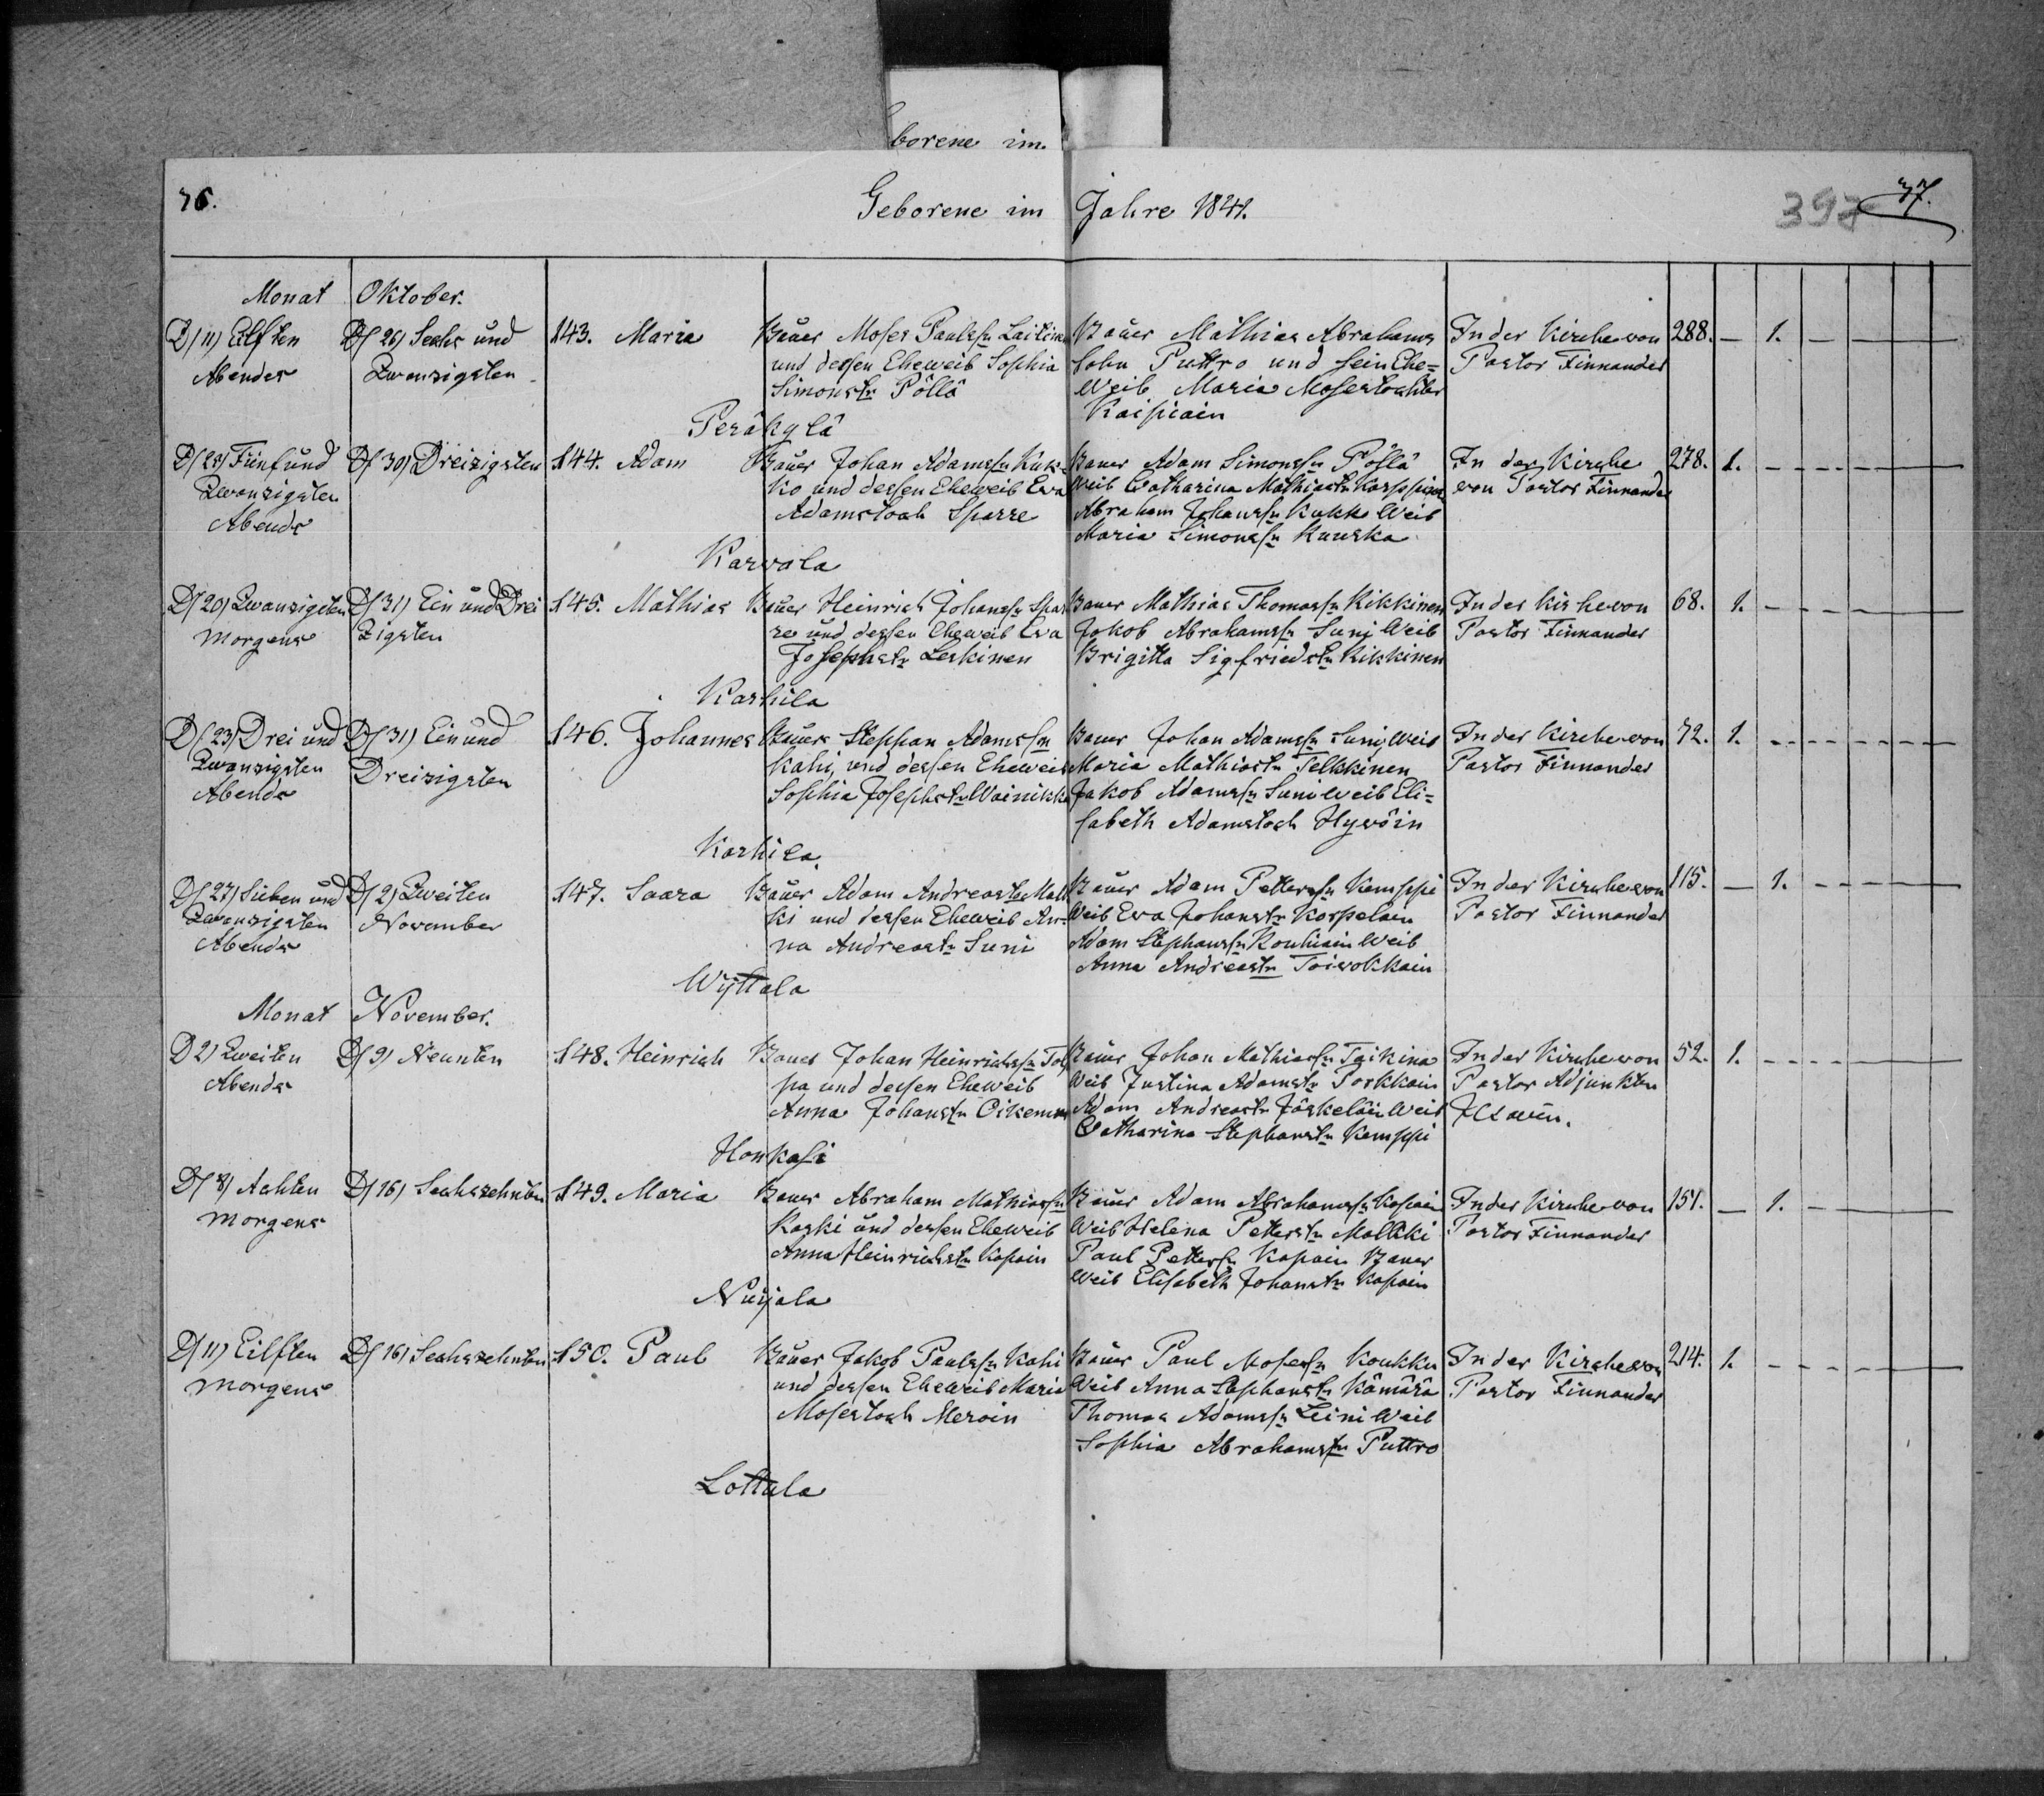 borene im
76.
Geborene im Jahre 1841.
397
77.
Monat Oktober.
D/11) Eilften
Abends
D/26) Sechs und
Zwanzigsten
143. Maria
Bauer Moses Paulssn Laitine
und dessen Eheweib Sophia
Simonstr Pöllä
Bauer Mathias Abrahams
sohn Puttro und sein Ehe=
Weib Maria Mosestochter
Kaipiain
In der Kirche von
Pastor Finnander
288. — 1. —
Peräkylä
D/25) Fünf und
Zwanzigsten
Abends
D/30) Dreizigsten
144. Adam
Bauer Johan Adamssn Kuk-
ko und dessen Eheweib Eva
Adamstoch Sparre
Bauer Adam Simonssn Pöllä
Weib Catharina Mathiastr Karppinen
Abraham Johanssn Kukko Weib
Maria Simonssn Kuuska
In der Kirche
von Pastor Finnander
278. 1. —
Karvala
D/20) Zwanzigsten
Morgens
D/31) Ein und Drei
zigsten
145. Mathias
Bauer Heinrich Johanssn Spar
re und dessen Eheweib Eva
Josephstr Leskinen
Bauer Mathias Thomassn Kikkinen
Jakob Abrahamssn Suni Weib
Brigitta Sigfriedstr Kikkinen
In der Kirche von
Pastor Finnander
68. 1. —
Karhila
D/23) Drei und
Zwanzigsten
Abends
D/31) Ein und
Dreizigsten
146. Johannes
Bauer Steppan Adamssn
Kahi, und dessen Eheweib
Sophia Josephstr Wainikka
Bauer Johan Adamssn Suni, Weib
Maria Mathiastr Telkkinen
Jakob Adamssn Suni Weib Eli=
sabeth Adamstoch Hyvöin
In der Kirche von
Pastor Finnander
72. 1. —
Karhila.
D/27) Sieben und
Zwanzigsten
Abends
D/2) Zweiten
November
147. Saara
Bauer Adam Andreastr Malk
ki und dessen Eheweib An-
na Andreastr Suni
Bauer Adam Petterssn Kemppi
Weib Eva Johanstr Korpelain
Adam Stephanssn Rouhiain Weib
Anna Andreastr Toivokkain
In der Kirche von
Pastor Finnander
115. — 1. —
Wyttala
Monat November.
D 2) Zweiten
Abends
D/9) Neunten
148. Heinrich
Bauer Johan Heinrichssn Tol
pa und dessen Eheweib
Anna Johanstr Oikemus
Bauer Johan Mathiassn Taikina
Weib Justina Adamstr Porkkain
Adam Andreastr Jäskeläin Weib
Catharina Stephanstr Kemppi
In der Kirche von
Pastor Adjunkten
52. 1. —
Honkasi
D/8) Achten
Morgens
D/16) Sechszehnten
149. Maria
Bauer Abraham Mathiassn
Koski und dessen Eheweib
Anna Heinrichstr Kapain
Bauer Adam Abrahamssn Kapain
Weib Helena Petterstr Malkki
Paul Petterssn Kapain Bauer
Weib Elisabeth Johanstr Kapain
In der Kirche von
Pastor Finnander
151. — 1. —
Nuijala
D/11) Eilften
Morgens
D/16) Sechszehnten
150. Paul
Bauer Jakob Paulssn Kahi
und dessen Eheweib Maria
Mosestoch Meroin
Bauer Paul Mosessn Koukku
Weib Anna Stephanstr Kämärä
Thomas Adamssn Leini Weib
Sophia Abrahamstr Puttro
In der Kirche von
Pastor Finnander
214. 1. —
Lottala